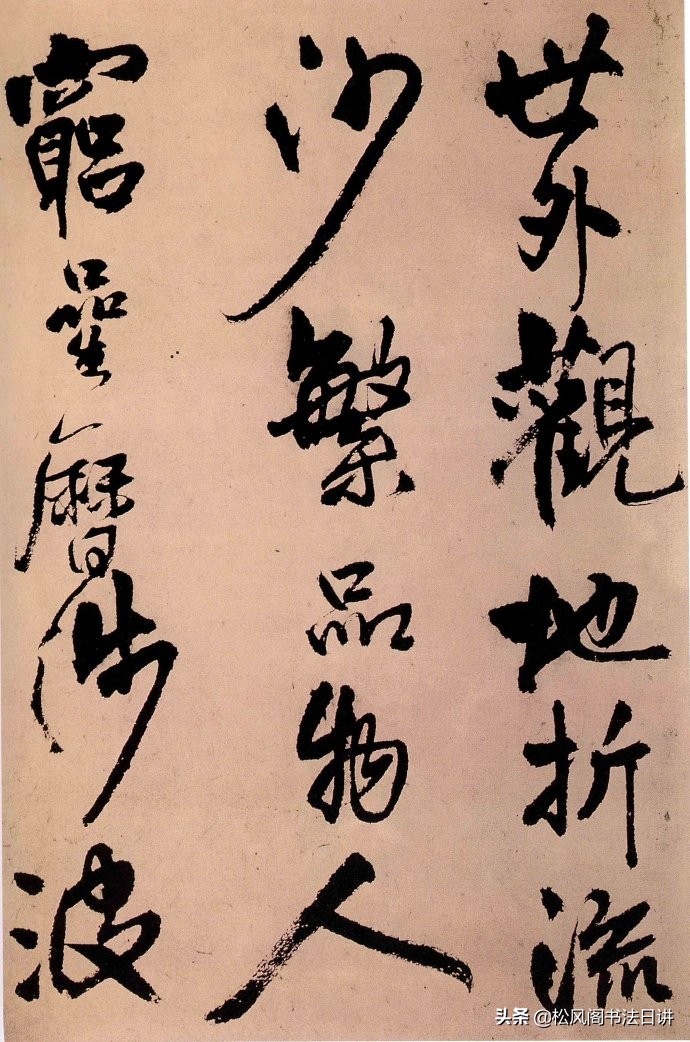 世外觀地折流
沙繁品物人
窮星曆涉波
头条 @松风阁书法日讲